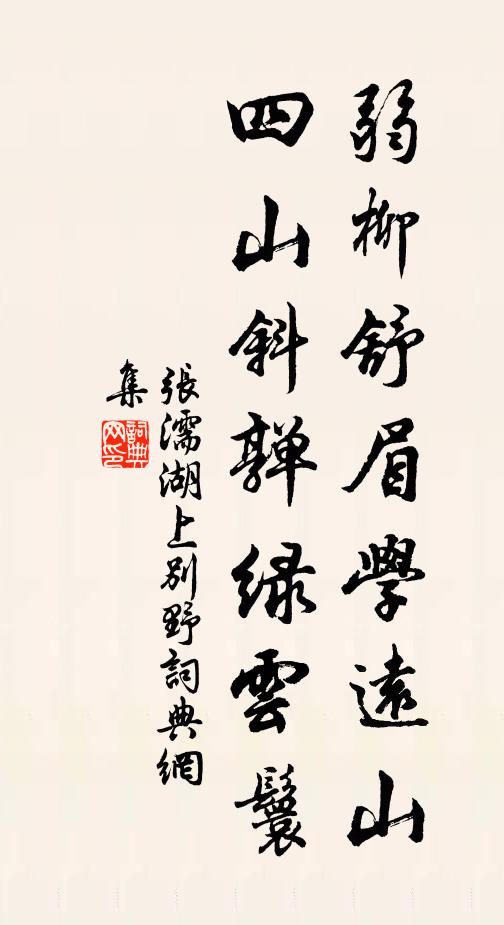 弱柳舒眉學遠山
四山斜軃緑雲鬟
張濡湖上別野詞典網
集
詞典
网印